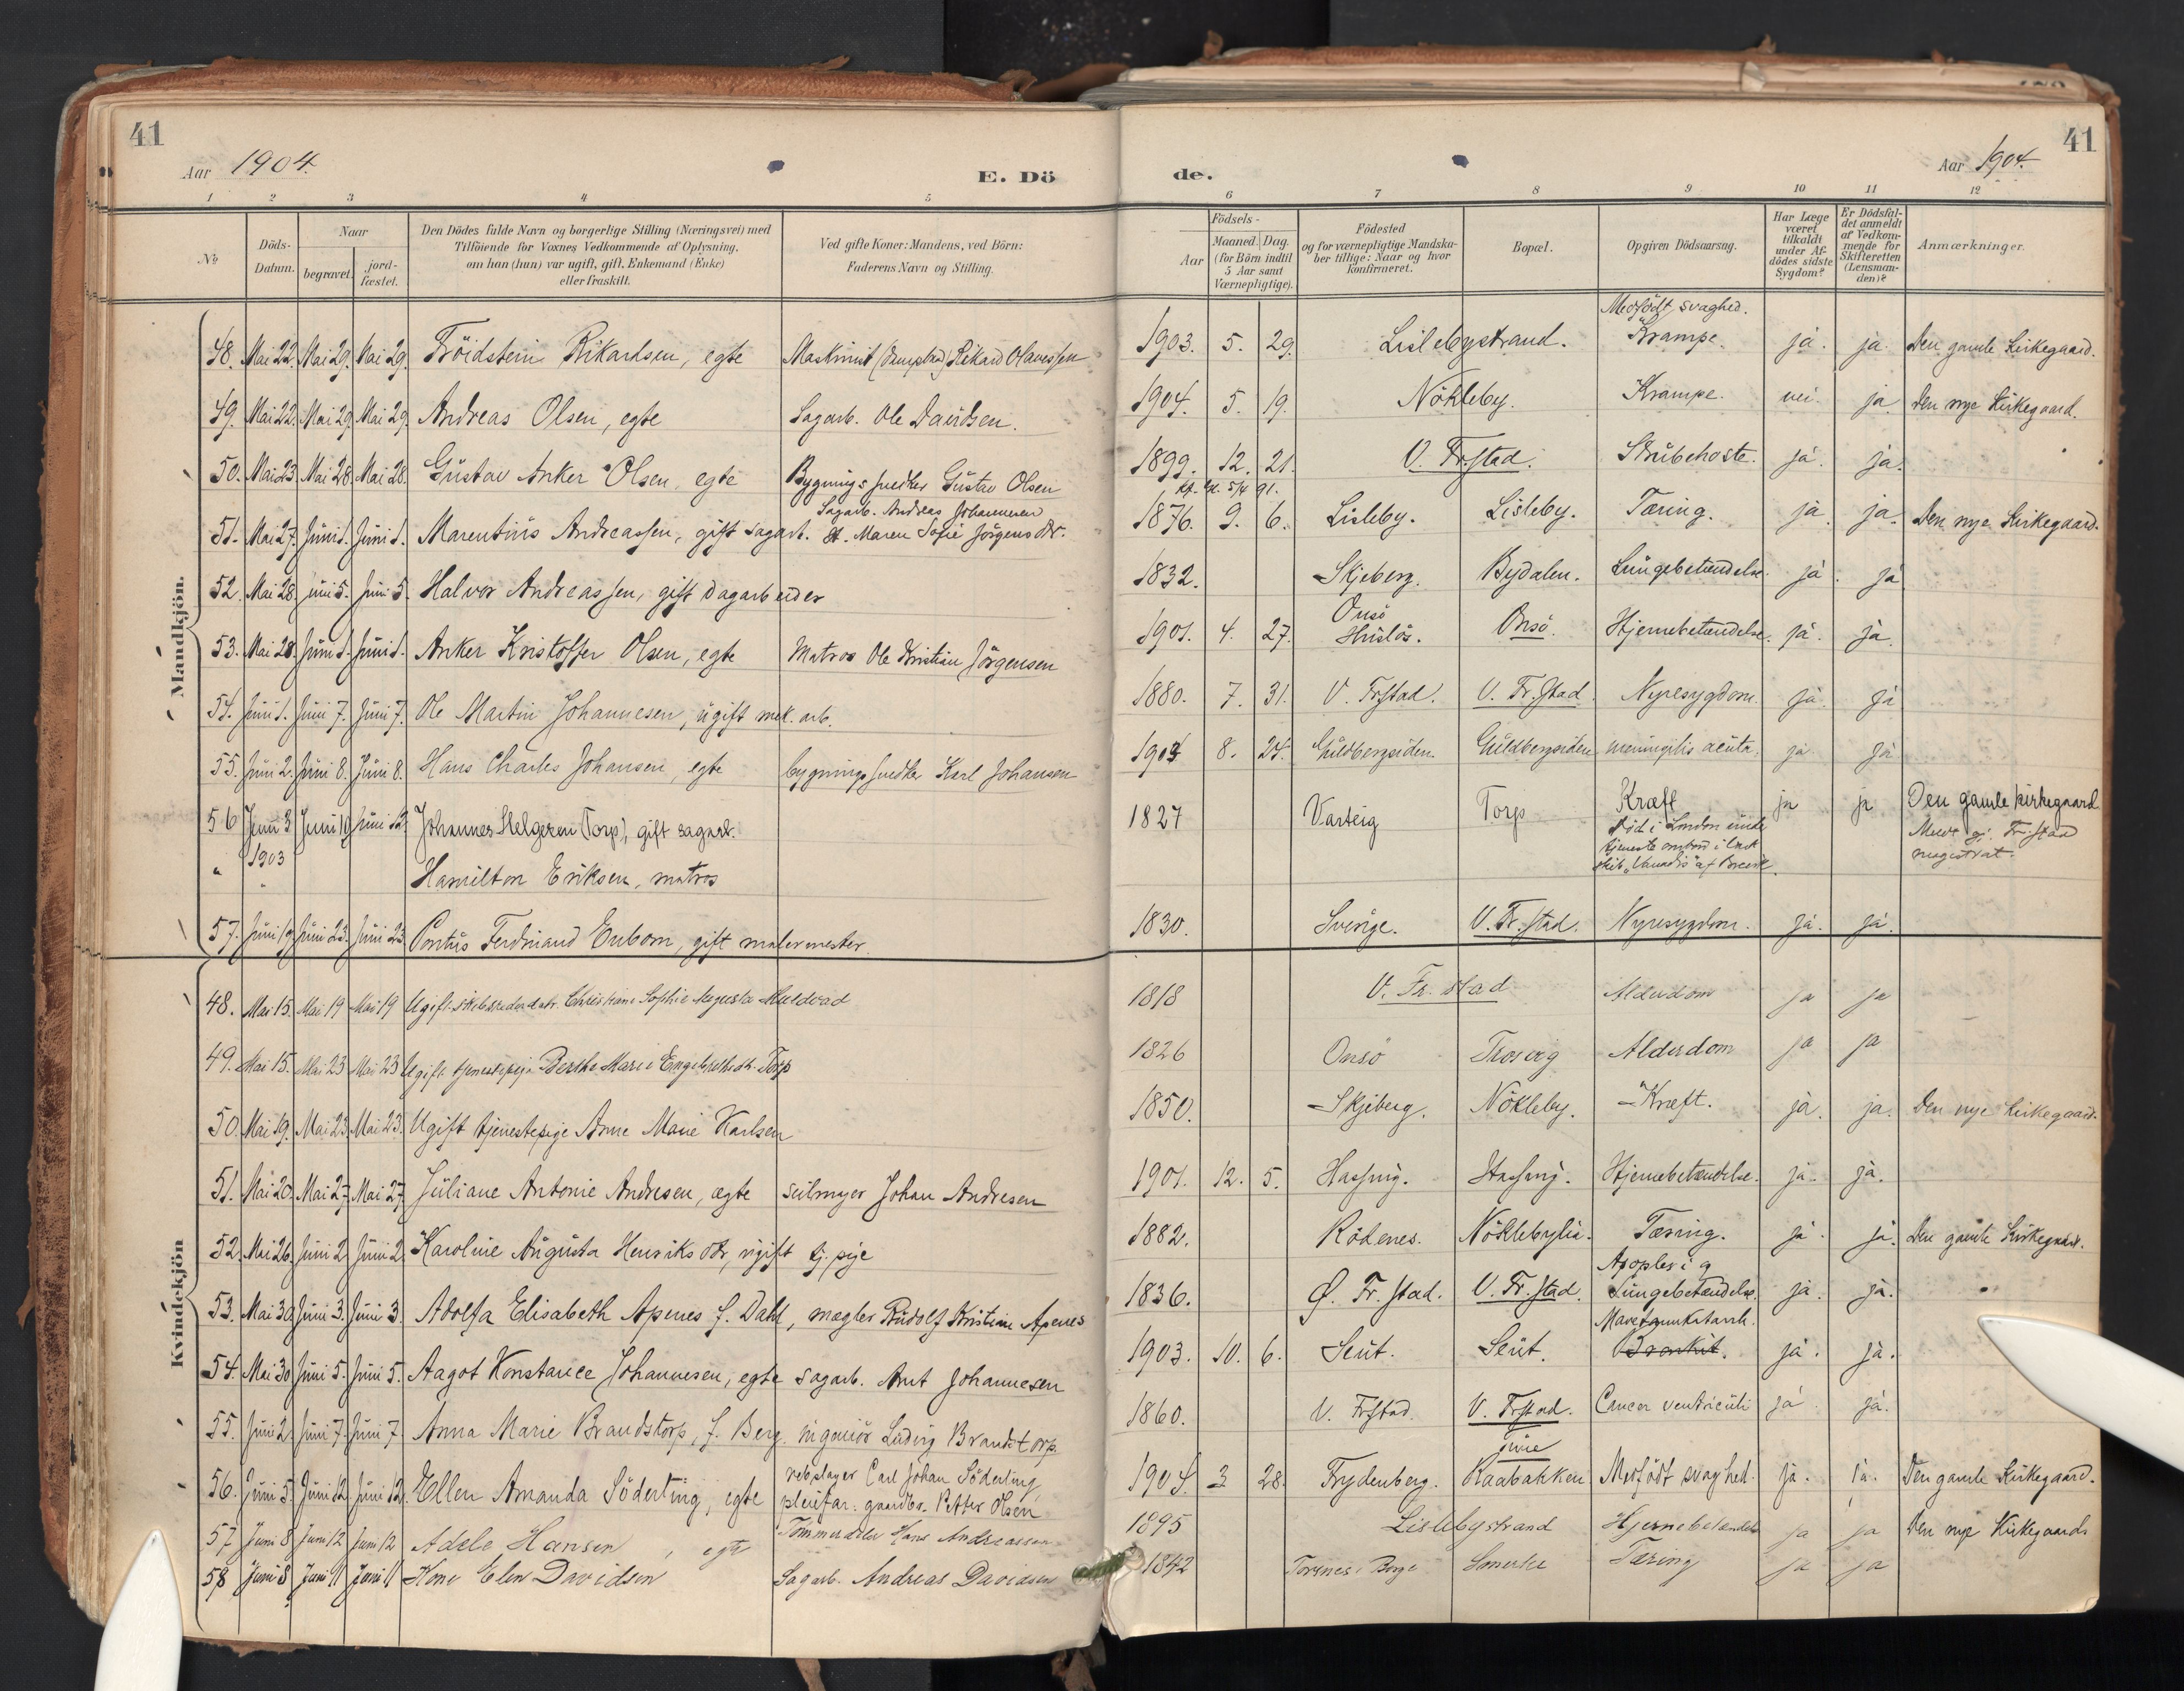 41
Aar 1904.
E. Dö
1 2 3 4 5
No
Döds-Datum.
Naar
begravet.
jord-fæstet.
Den Dödes fulde Navn og borgerlige Stilling (Næringsvei) med
Tilföiende for Voxnes Vedkommende af Oplysning,
om han (hun) var ugift, gift, Enkemand (Enke)
eller fraskilt.
Ved gifte Koner: Mandens, ved Börn:
Faderens Navn og Stilling.
Mandkjön.
48. Mai 22. Mai 29. Mai 29. Fröidstein Rikardsen, egte Maskinist Rikard Olavessen
49. Mai 22. Mai 29 Mai 29. Andreas Olsen, egte Sagarb. Ole Davidsen.
50. Mai 23. Mai 28 Mai 28. Gustav Anker Olsen, egte Bygningssnedker Gustav Olsen
Sagarb. Andreas Johannesen
51. Mai 27. Juni 1. Juni 1. Marentius Andreassen, gift sagarb. H. Maren Sofie Jörgensdtr.
52. Mai 28. Juni 5. Juni 5. Halvor Andreassen, gift dagarbeider
53. Mai 28. Juni 1. Juni 1. Anker Kristoffer Olsen, egte Matros Ole Kristian Jörgensen
54. Juni 1. Juni 7. Juni 7. Ole Martin Johannesen, ugift mek. arb.
55. Juni 2. Juni 8. Juni 8. Hans Charles Johansen, egte bygningssnedker Karl Johansen
56 Juni 3 Juni 10 Juni 12 Johannes Helgesen (Torp), gift sagarb.
" 1903
" Hamilton Eriksen, matros
57. Juni 19. Juni 23. Juni 23 Pontus Ferdinand Enbom, gift malermester.
Kvindekjön
48. Mai 15. Mai 19 Mai 19 Ugift skibsrederdatr. Christiane Sophie Augusta Huedvad
49. Mai 15. Mai 23 Mai 23 Ugift tjenestepige Berthe Marie Engebrethsdtr. Torp
50. Mai 19. Mai 23 Mai 23. Ugift tjenestepige Anne Marie Karlsen
51. Mai 20. Mai 27. Mai 27 Juliane Antonie Andresen, ægte seilmager Johan Andresen
52. Mai 26. Juni 2 Juni 2 Karoline Augusta Henriksdtr, ugift tj. pige
53. Mai 30. Juni 3. Juni 3. Adolfa Elisabeth Apenes f. Dahl, mægler Rudolf Kristian Apenes
54. Mai 30 Juni 5. Juni 5. Aagot Konstance Johannesen, egte sagarb. Arnt Johannesen
55. Juni 2 Juni 7. Juni 7. Anna Marie Brandstorp, f. Berg. ingeniör Ludvig Brandstorp.
56. Juni 5. Juni 12 Juni 12. Ellen Amanda Söderling, egte rebslager Carl Johan Söderling
pleiefar: gaardbr. Petter Olsen
57 Juni 8 Juni 12 Juni 12 Adele Hansen, egte Tömmerdeler Hans Andreassen
58 Juni 8 Juni 11 Juni 11 Kone Elen Davidsen Sagarb. Andreas Davidsen
de.
Aar 1904.
41
6 7 8 9 10 11 12
Födsels-
Aar
Maaned. Dag.
(for Börn indtil
5 Aar samt
Værnepligtige).
Födested
og for værnepligtige Mandska-
ber tillige: Naar og hvor
konfirmeret.
Bopæl.
Opgiven Dödsaarsag.
Har Læge
været
tilkaldt
under Af-
dödes sidste
Sygdom?
Er Dödsfal-
det anmeldt
af Vedkom-
mende for
Skifteretten
(Lensman-
den)?
Anmærkninger.
Medfödt svaghed.
1903. 5. 29. Lislebystrand. Krampe. ja. ja. Den gamle Kirkegaard.
1904. 5. 19. Nökleby. Krampe. nei. ja. Den nye Kirkegaard.
1899. 12. 21. V. Fr.stad. Strubehoste. ja. ja.
5/4 91.
1876. 9. 6. Lisleby. Lisleby. Tæring. ja. ja. Den nye Kirkegaard.
1832. Skjeberg. Bydalen. Lungebetændelse. ja. ja
1901. 4. 27. Onsö Huslös. Onsö. Hjernebetændelse. ja. ja.
1880. 7. 31. V. Frstad. V. Fr.stad. Nyresygdom. ja. ja
1904 8. 24. Guldbergsiden. Guldbergsiden meningitis acuta. ja. ja
1827 Varteig Torp Kræft ja ja Den gamle Kirkegaard
Död i London under
tjeneste ombord i
skib "Vanadis" af
Fr.stad
magistrat.
1830. Sverige. V. Fr.stad. Nyresygdom. ja. ja.
1818 V. Fr. stad Alderdom ja ja
1826 Onsö Trosvig Alderdom ja ja
1850. Skjeberg. Nökleby. Kræft. ja. ja. Den nye Kirkegaard.
1901. 12. 5. Hassing. Hassing. Hjernebetændelse. ja. ja.
1882. Rödenes. Nöklebylia. Tæring. ja. ja. Den gamle Kirkegaard.
Apoplexi og
1836. Ø. Fr.stad. V. Fr.stad. Lungebetændelse. ja. ja.
Mavetarmkatarrh.
1903. 10. 6. Seut. Seut. Bronkit. ja. ja.
1860. V. Frstad. V. Frstad. Cancer ventriculi ja. ja.
1904. 3 28. Frydenberg. Raabakken Medfödt svaghed. ja. ja. Den gamle Kirkegaard.
1895 Lislebystrand Hjernebetændelse ja ja Den nye Kirkegaard
1842 Torsnes i Borge Smertu Tæring ja ja